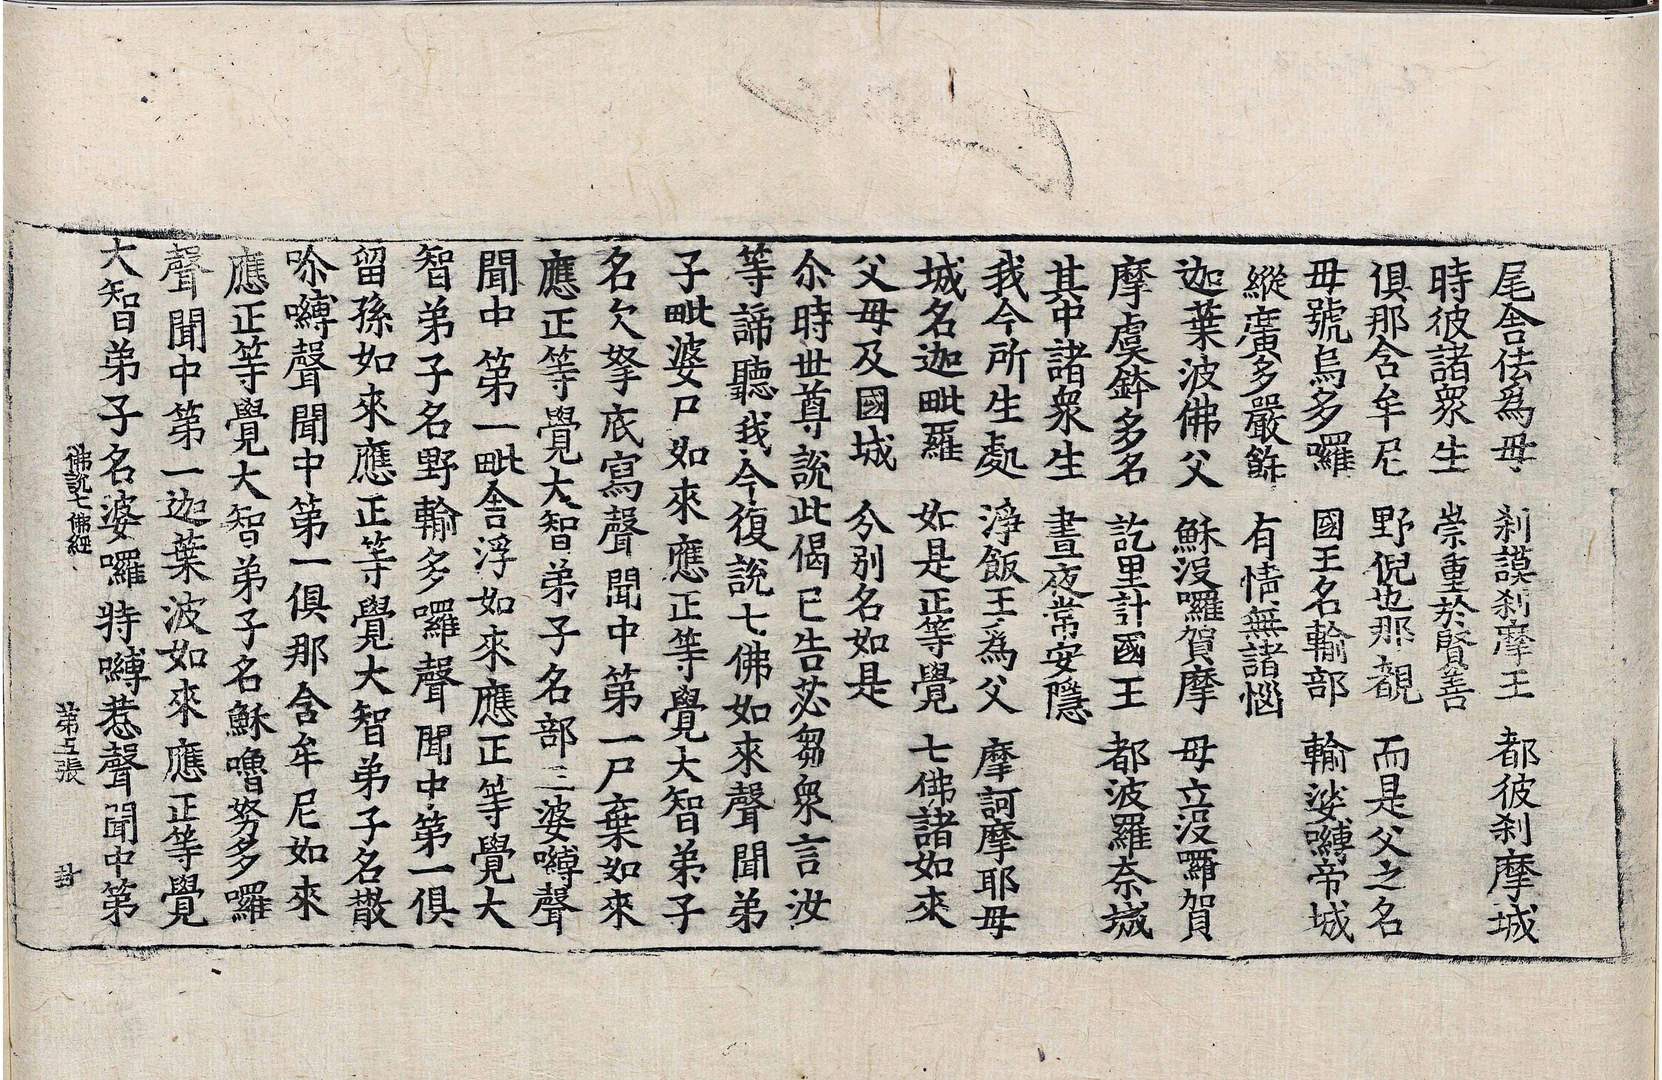 尾舍佉為母 刹謨刹摩王 都彼刹摩城
時彼諸眾生 崇重於賢善
俱那含牟尼 野倪也那覩 而是父之名
母號烏多囉 國王名輸部 輸娑嚩帝城
縱廣多嚴飾 有情無諸惱
迦葉波佛父 穌沒囉賀摩 母立沒囉賀
摩虞鉢多名 訖里計國王 都波羅奈城
其中諸衆生 晝夜常安隱
我今所生處 淨飯王為父 摩訶摩耶母
城名迦毗羅 如是正等覺 七佛諸如來
父母及國城 分別名如是
尒時世尊說此偈已告苾芻眾言汝
等諦聽我今復說七佛如來聲聞弟
子毗婆尸如來應正等覺大智弟子
名欠拏底寫聲聞中第一尸棄如來
應正等覺大智弟子名部三婆嚩聲
聞中第一毗舍浮如來應正等覺大
智弟子名野輸多囉聲聞中第一俱
留孫如來應正等覺大智弟子名散
唅嚩聲聞中第一俱那含牟尼如來
應正等覺大智弟子名穌嚕努多囉
聲聞中第一迦葉波如來應正等覺
大智弟子名婆囉特嚩惹聲聞中第
佛說七佛經 第五張